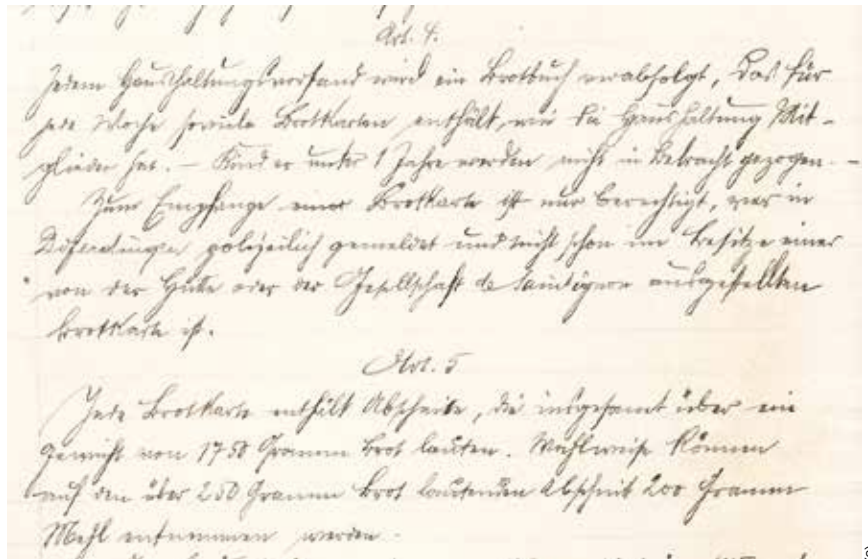 Art. 4.
Jedem Haushaltungsvorstand wird ein Brotbuch verabfolgt, das für
jede Woche soviele Brotkarten enthält, wie die Haushaltung Mit-
glieder hat. – Kinder unter 1 Jahre werden nicht in Betracht gezogen. –
Zum Empfange einer Brotkarte ist nur berechtigt, wer in
Differdingen polizeilich gemeldet und nicht schon im Besitze einer
von der Hütte oder der Gesellschaft de Saintignon ausgestellten
Brotkarte ist.
Art. 5
Jede Brotkarte enthält Abschnitte, die insgesamt über ein
Gewicht von 1750 Gramm Brot lauten. Wahlweise können
auf den über 250 Gramm Brot lautenden Abschnitt 200 Gramm
Mehl entnommen werden.